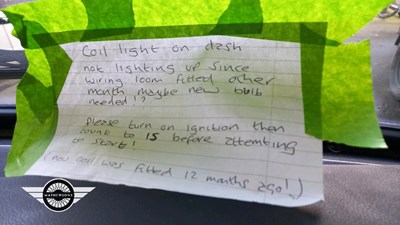 Coil light on dash
not lighting up since
wiring loom fitted other
month maybe new bulb
needed!?
Please turn on ignition then
count to 15 before attemting
to start!
(new coil was fitted 12 months ago!)
MATHEWSONS